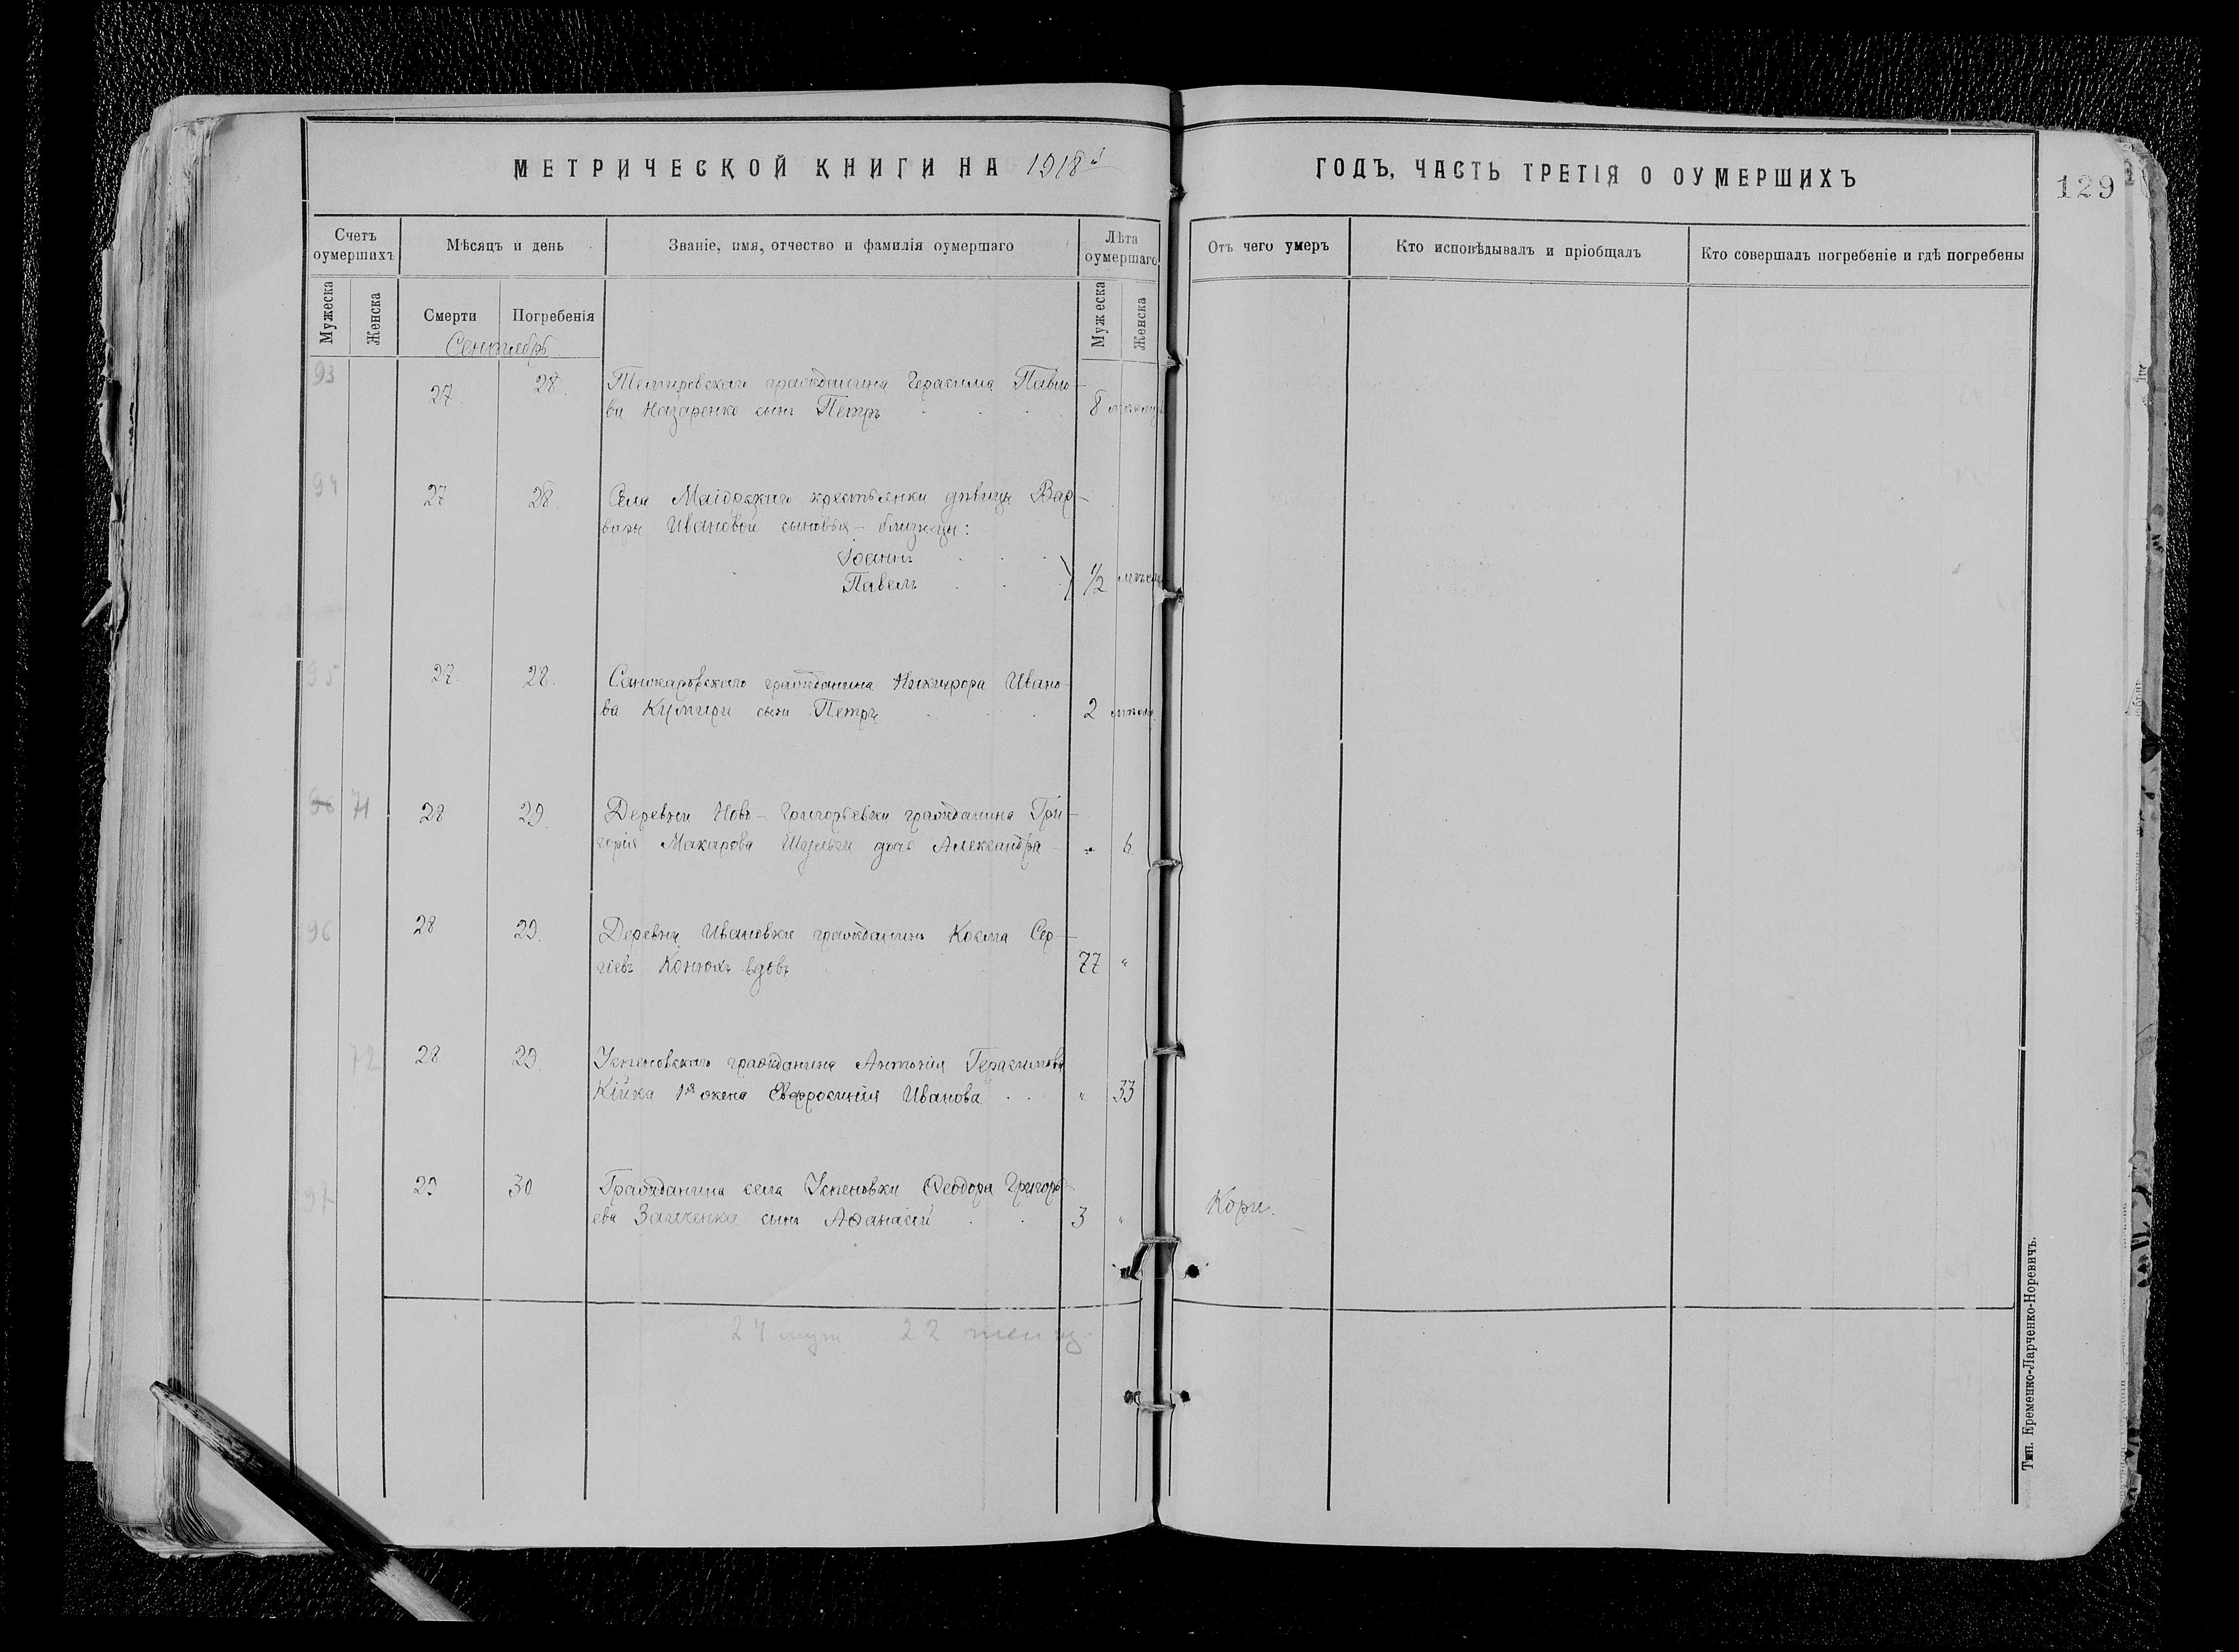 МЕТРИЧЕСКОЙ КНИГИ НА 1918й
ГОДЪ, ЧАСТЬ ТРЕТІЯ О ОУМЕРШИХЪ
129
Счетъ оумершихъ
Мѣсяцъ и день
Званіе, имя, отчество и фамилія оумершаго
Лѣта оумершаго
Отъ чего умеръ
Кто исповѣдывалъ и пріобщалъ
Кто совершалъ погребеніе и гдѣ погребены
Мужеска
Женска
Смерти
Погребенія
Мужеска
Женска
Сентябрь
93 27. 28. Темировскаго гражданина Герасима Павло-
ва Назаренко сынъ Петръ 8 мѣсяц.
94 27 28 Села Маіорскаго крестьянки дѣвицы Вар-
вары Ивановой сыновья - близнецы:
Іоаннъ
Павелъ 1/2 мѣсяц.
95 27. 28. гражданина Никифора Ивано-
ва сынъ Петръ 2 мѣсяц.
96 71 28 29. Деревни Ново-Григорьевки гражданина Гри-
горія Макарова Шульги дочь Александра " 6
96 28 29. Деревни Ивановки гражданинъ Косма Сер-
гіевъ Конюхъ вдовъ 77 "
72 28 29. Успеновскаго гражданина Антонія Герасимова
Кійка 1я жена Евфросинія Иванова " 33
97 29 30 Гражданина села Успеновки Ѳеодора Григорь-
ева сынъ Аѳанасій 3 " Кори.
24 муж 22 женщ.
Тип. Еременко-Ларченко-Норевичъ.